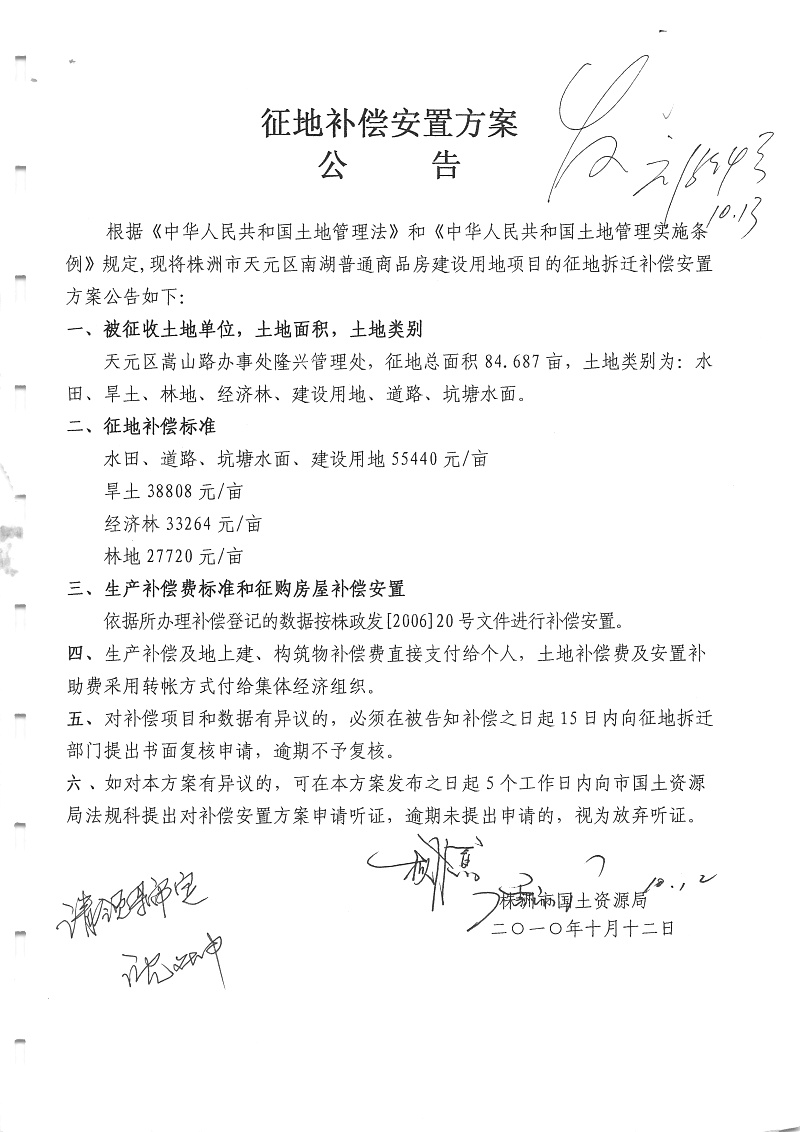 征地补偿安置方案
公 告
发
10.13
根据《中华人民共和国土地管理法》和《中华人民共和国土地管理实施条
例》规定,现将株洲市天元区南湖普通商品房建设用地项目的征地拆迁补偿安置
方案公告如下:
一、被征收土地单位，土地面积，土地类别
天元区嵩山路办事处隆兴管理处，征地总面积 84.687 亩，土地类别为：水
田、旱土、林地、经济林、建设用地、道路、坑塘水面。
二、征地补偿标准
水田、道路、坑塘水面、建设用地 55440 元/亩
旱土 38808 元/亩
经济林 33264 元/亩
林地 27720 元/亩
三、生产补偿费标准和征购房屋补偿安置
依据所办理补偿登记的数据按株政发[2006]20 号文件进行补偿安置。
四、生产补偿及地上建、构筑物补偿费直接支付给个人，土地补偿费及安置补
助费采用转帐方式付给集体经济组织。
五、对补偿项目和数据有异议的，必须在被告知补偿之日起 15 日内向征地拆迁
部门提出书面复核申请，逾期不予复核。
六、如对本方案有异议的，可在本方案发布之日起 5 个工作日内向市国土资源
局法规科提出对补偿安置方案申请听证，逾期未提出申请的，视为放弃听证。
株洲市国土资源局
10.12
二〇一〇年十月十二日
请领导审定